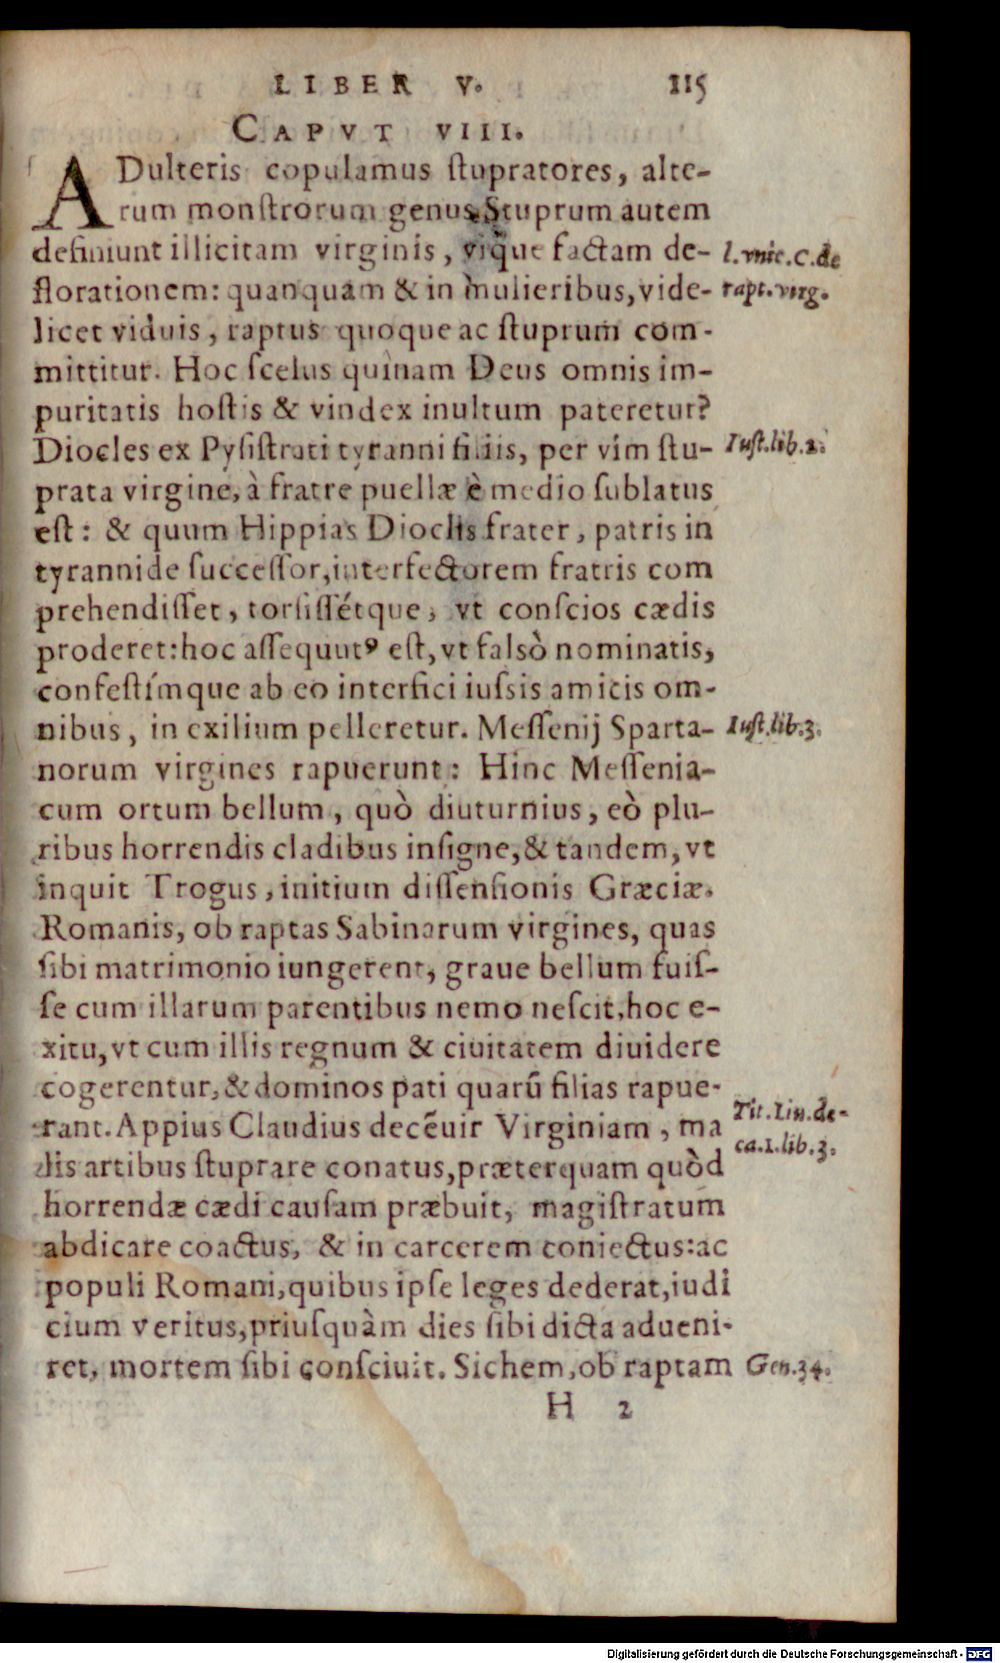 LIBER V. 115
CAPVT VIII.
ADulteris copulamus ſtupratores, alte-
rum monſtrorum genus. Stuprum autem
definiunt illicitam virginis, vique factam de-
florationem: quanquam & in mulieribus, vide-
licet viduis, raptus quoque ac ſtuprum com-
mittitur. Hoc ſcelus quinam Deus omnis im-
puritatis hoſtis & vindex inultum pateretur?
Diocles ex Pyſiſtrati tyranni filiis, per vim ſtu-
prata virgine, à fratre puellæ è medio ſublatus
eſt: & quum Hippias Dioclis frater, patris in
tyrannide ſucceſſor, interfectorem fratris com
prehendiſſet, torſiſſétque, vt conſcios cædis
proderet: hoc aſſequutꝰ eſt, vt falsò nominatis,
confeſtímque ab eo interfici iuſsis amicis om-
nibus, in exilium pelleretur. Meſſenij Sparta-
norum virgines rapuerunt: Hinc Meſſenia-
cum ortum bellum, quò diuturnius, eò plu-
ribus horrendis cladibus inſigne, & tandem, vt
inquit Trogus, initium diſſenſionis Græciæ.
Romanis, ob raptas Sabinarum virgines, quas
ſibi matrimonio iungerent, graue bellum fuiſ-
ſe cum illarum parentibus nemo neſcit, hoc e-
xitu, vt cum illis regnum & ciuitatem diuidere
cogerentur, & dominos pati quarũ filias rapue-
rant. Appius Claudius decẽuir Virginiam, ma
lis artibus ſtuprare conatus, præterquam quòd
horrendæ cædi cauſam præbuit, magiſtratum
abdicare coactus, & in carcerem coniectus: ac
populi Romani, quibus ipſe leges dederat, iudi
cium veritus, priuſquàm dies ſibi dicta adueni-
ret, mortem ſibi conſciuit. Sichem, ob raptam
H 2
l. vnic. C. de
rapt. virg.
Iuſt. lib. 2.
Iuſt. lib. 3.
Tit. Liu. de-
ca. 1. lib. 3.
Gen. 34.
Digitalisierung gefördert durch die Deutsche Forschungsgemeinschaft - DFG